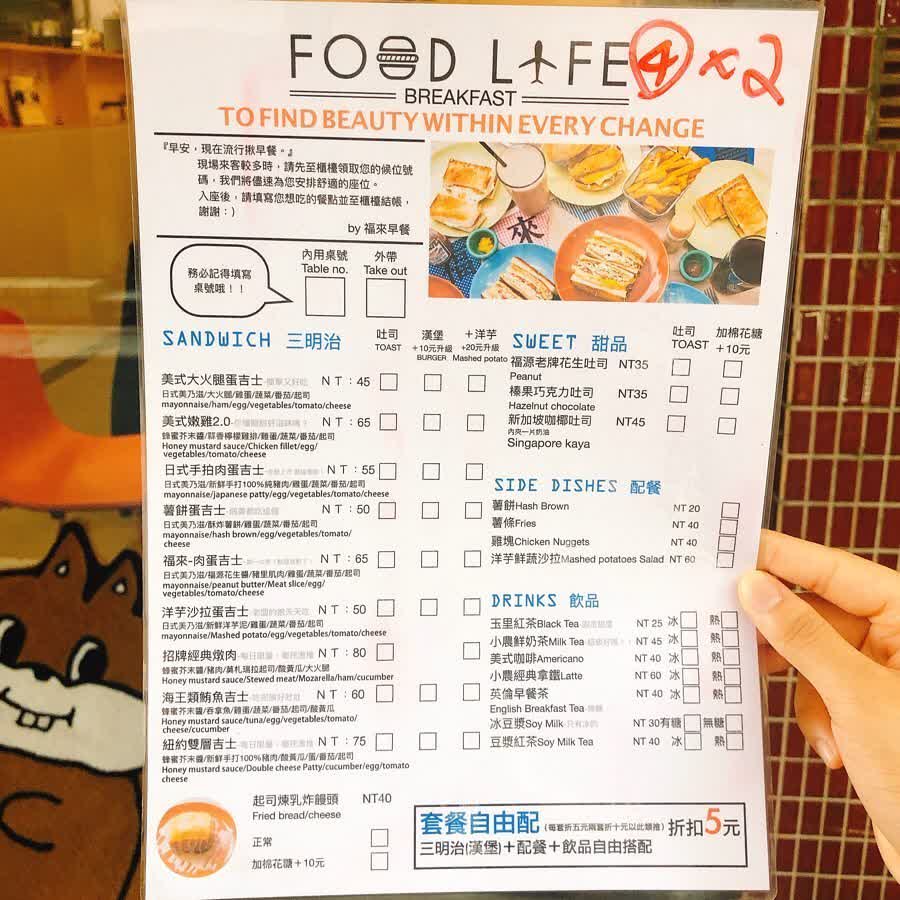 FOOD LIFE
④ x 2
BREAKFAST
TO FIND BEAUTY WITHIN EVERY CHANGE
『早安，現在流行揪早餐。』
現場來客較多時，請先至櫃檯領取您的候位號
碼，我們將儘速為您安排舒適的座位。
入座後，請填寫您想吃的餐點並至櫃檯結帳，
謝謝：）
by 福來早餐
來
務必記得填寫
桌號哦！！
內用桌號
Table no.
外帶
Take out
SANDWICH 三明治
吐司
TOAST
漢堡
+10元升級
BURGER
＋洋芋
+20元升級
Mashed potato
美式大火腿蛋吉士 NT：45
日式美乃滋/大火腿/雞蛋/蔬菜/番茄/起司
mayonnaise/ham/egg/vegetables/tomato/cheese
美式嫩雞2.0 NT：65
蜂蜜芥末醬/蒜香檸檬雞排/雞蛋/蔬菜/番茄/起司
Honey mustard sauce/Chicken fillet/egg/
vegetables/tomato/cheese
日式手拍肉蛋吉士 NT：55
日式美乃滋/新鮮手打100%純豬肉/雞蛋/蔬菜/番茄/起司
mayonnaise/japanese patty/egg/vegetables/tomato/cheese
薯餅蛋吉士 NT：50
日式美乃滋/酥炸薯餅/雞蛋/蔬菜/番茄/起司
mayonnaise/hash brown/egg/vegetables/tomato/
cheese
福來-肉蛋吉士 NT：65
日式美乃滋/福源花生醬/豬里肌肉/雞蛋/蔬菜/番茄/起司
mayonnaise/peanut butter/Meat slice/egg/
vegetables/tomato/cheese
洋芋沙拉蛋吉士 NT：50
日式美乃滋/新鮮洋芋泥/雞蛋/蔬菜/番茄/起司
mayonnaise/Mashed potato/egg/vegetables/tomato/cheese
招牌經典燉肉 NT：80
蜂蜜芥末醬/豬肉/莫札瑞拉起司/酸黃瓜/大火腿
Honey mustard sauce/Stewed meat/Mozarella/ham/cucumber
海王類鮪魚吉士 NT：60
蜂蜜芥末醬/吞拿魚/雞蛋/蔬菜/番茄/起司/酸黃瓜
Honey mustard sauce/tuna/egg/vegetables/tomato/
cheese/cucumber
紐約雙層吉士 NT：75
蜂蜜芥末醬/新鮮手打100%豬肉/酸黃瓜/蛋/番茄/起司
Honey mustard sauce/Double cheese Patty/cucumber/egg/tomato
cheese
起司煉乳炸饅頭 NT40
Fried bread/cheese
正常
加棉花糖＋10元
SWEET 甜品
吐司
TOAST
加棉花糖
＋10元
福源老牌花生吐司 NT35
Peanut
榛果巧克力吐司 NT35
Hazelnut chocolate
新加坡咖椰吐司 NT45
內夾一片奶油
Singapore kaya
SIDE DISHES 配餐
薯餅Hash Brown NT 20
薯條Fries NT 40
雞塊Chicken Nuggets NT 40
洋芋鮮蔬沙拉Mashed potatoes Salad NT 60
DRINKS 飲品
玉里紅茶Black Tea NT 25 冰 熱
小農鮮奶茶Milk Tea NT 45 冰 熱
美式咖啡Americano NT 40 冰 熱
小農經典拿鐵Latte NT 60 冰 熱
英倫早餐茶 NT 40 冰 熱
English Breakfast Tea
冰豆漿Soy Milk NT 30 有糖 無糖
豆漿紅茶Soy Milk Tea NT 40 冰 熱
套餐自由配（每套折五元兩套折十元以此類推）折扣5元
三明治(漢堡)＋配餐＋飲品自由搭配